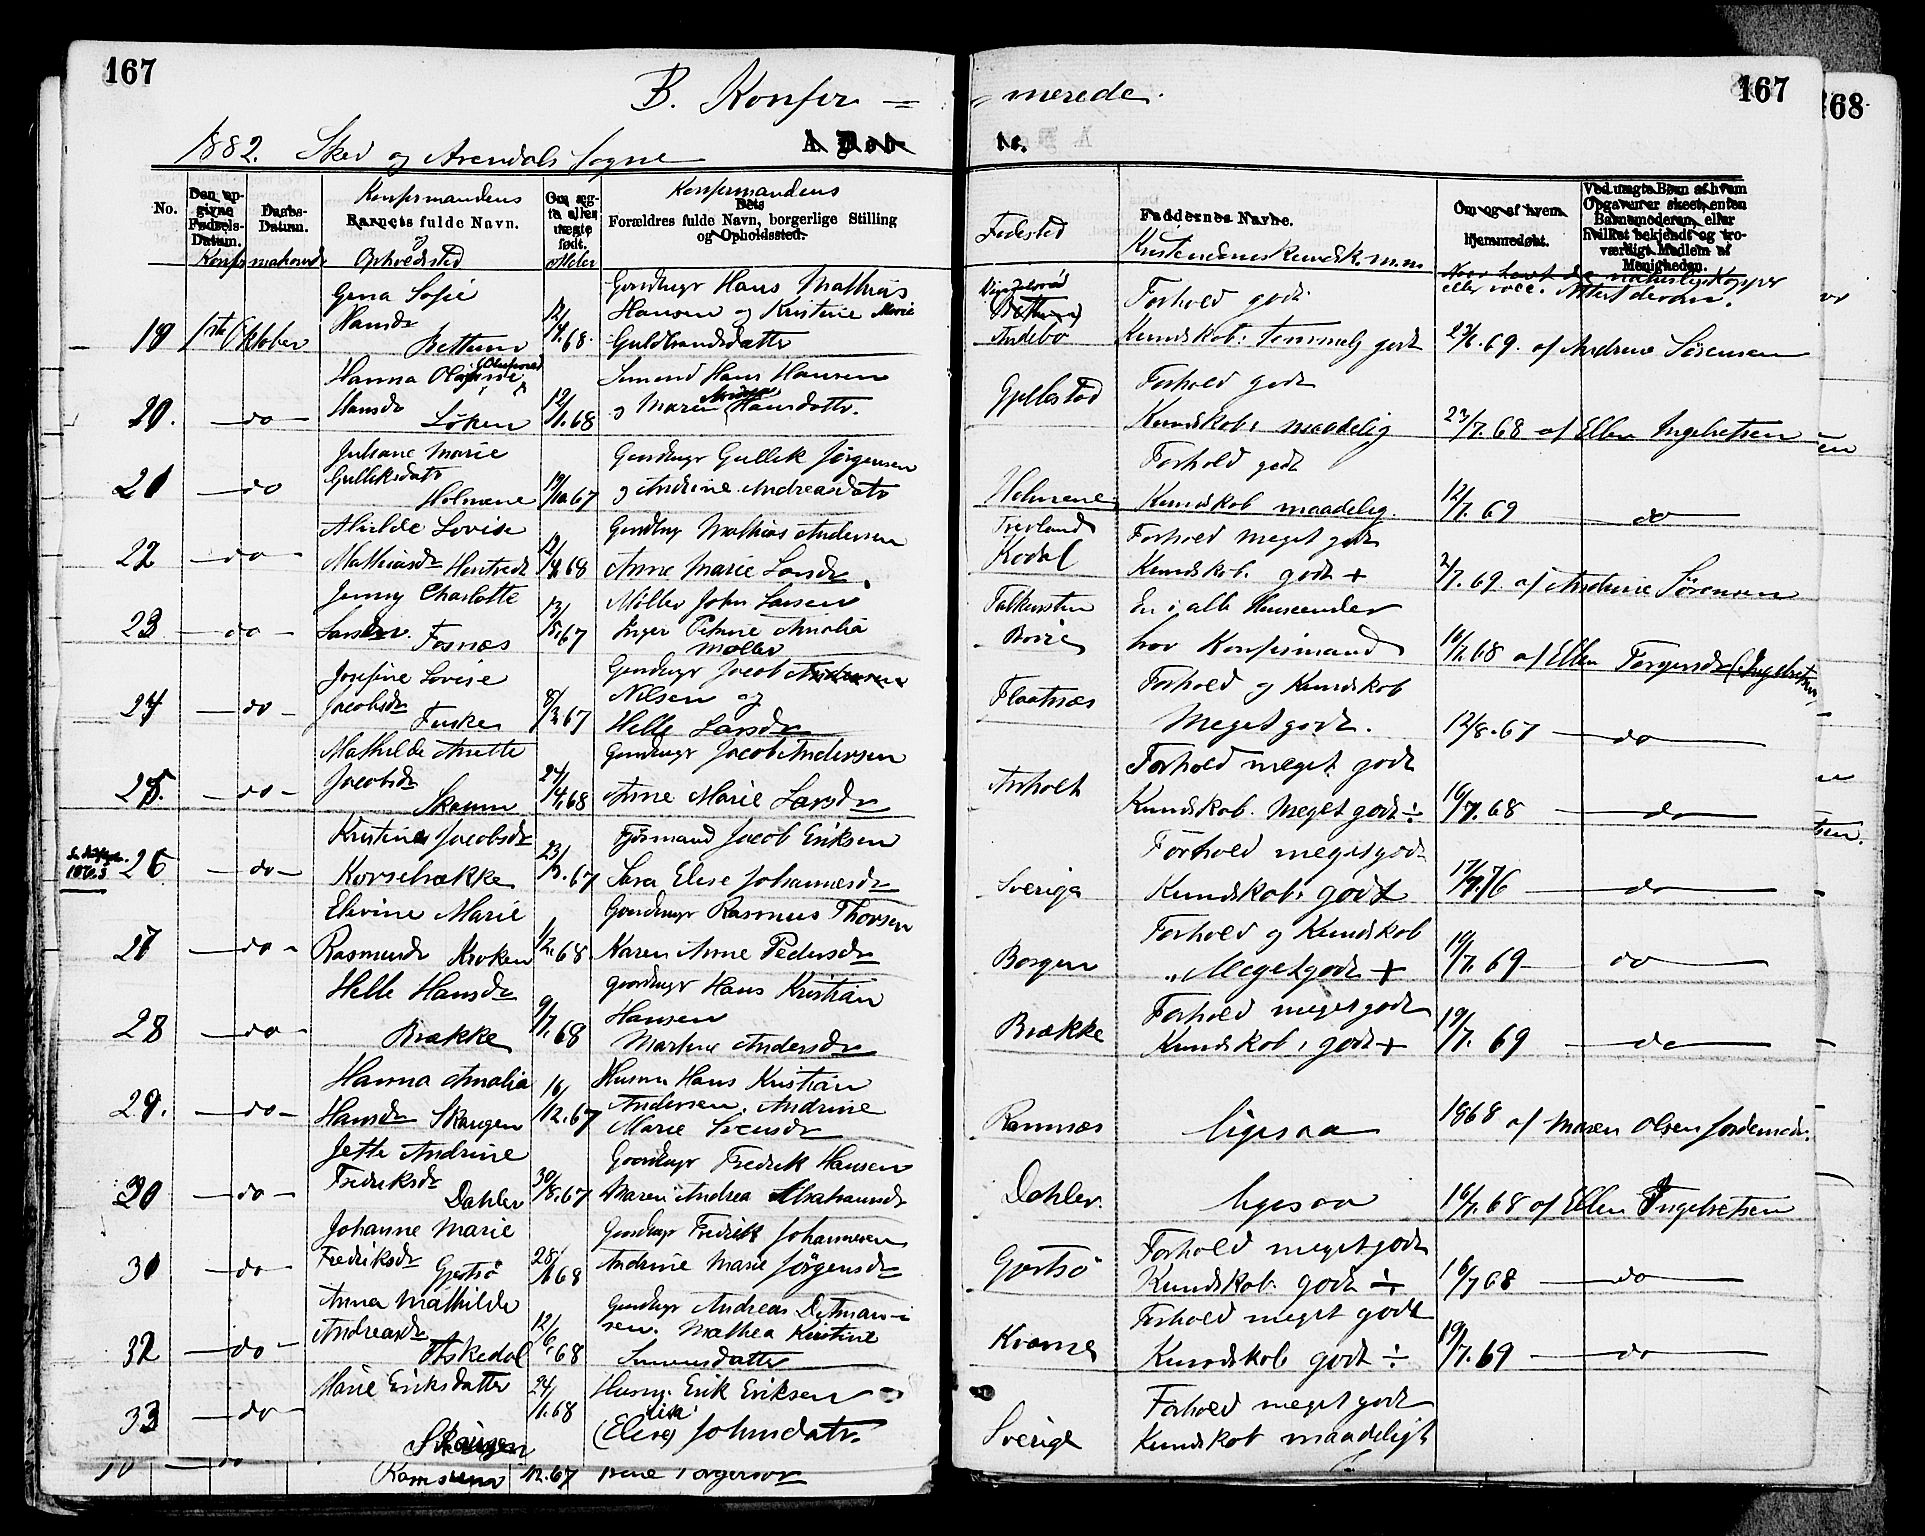 167
B. Konfir =
1882. Skee og Arendals Sogne
A. Døb-
No.
Den an-
givne
Fødsels-
Datum.
Daabs-
Datum.
Konfirmandens
Barnets fulde Navn.
Opholdssted
Om æg-
te eller
uægte
født.
Konfirmandens
Dets
Forældres fulde Navn, borgerlige Stilling
og Opholdssted.
Gina Sofie
Gaardbrgr Hans Mathias
Hansdr
12/4.68.
Hansen og Kristine Marie
19 1ste Oktober
Bettum
Guldbrandsdatter
Hanna
Hansdr
Sømand Hans Hansen
20. do
Løken
12/1.68
og Maren Hansdatr.
Juliane Marie
Gaardbrgr Gullik Jørgensen
21 do
Gulliksdatr
Holmene
67
og Andrine Andreasdatr
Lovise
Gaardbrgr Mathias Andersen
22 do
Mathiasdr
68
Anne Marie Larsdr
Jenny Charlotte
Møller John Larsen
23 do
Fosnæs
67
Inger Petrine Amalia
Møller
Josefine Lovise
Gaardbrgr Jacob Andersen
24 do
Jacobsdr
Fuske
67
Nilsen og
Helle Larsdr
Mathilde Anette
Gaardbrgr Jacob Andersen
25. do
Jacobsdr
Skaum
68
Anne Marie Larsdr
Kristine Jacobsdr
Jacob Eriksen
26 do
Korsebrække
67
Sara Elise Johannesdr
Elevine Marie
Gaardbrgr Rasmus Thorsen
27 do
Rasmusdr Kroken
68
Karen Anne Pedersdr
Helle Hansdr
Gaardbrgr Hans Kristian
28 do
Brække
9/7.68
Hansen
Martine Andersdr
Hanna Amalia
Husm Hans Kristian
29. do
Hansdr Skaugen
16/12.67
Andersen. Andrine
Marie
Jette Andrine
Gaardbrgr Fredrik Hansen
30 do
Fredriksdr
Dahler
30/8.67
Maren Andrea Abrahamsdr
Johanne Marie
Gaardbrgr Fredrik Johannesen
31 do
Fredriksdr
Gjertsø
68
Andrine Marie Jørgensdr
Anna Mathilde
Gaardbrgr Andreas Detman-
32 do
Andreasdr
Askedal
12/6.68
sen. Mathea Kirstine
Simensdatter
Marie Eriksdatter
24/1.68
Husm. Erik Eriksen
33 do
Skaugen
(Elise) Johnsdatr.
12.67
167
merede.
te.
Fødested
Faddernes Navne.
Kristendomskundsk. m.m
Om og af hvem
hjemmedøbt.
Ved uægte Børn af hvem
Opgaverer skeet, enten
Barnemoderen, eller
hvilket bekjendt og tro-
værdigt Medlem af
Menigheden.
Andebo
Forhold godt
Kundskab: temmelig godt
69. af Andrine Sørensen
Gjellestad
Forhold godt
Kundskab: maadelig
23/7.68 af Ellen Ingebretsen
Holmene
Forhold godt
Kundskab maadelig.
12/7.69 do
Kodal
Forhold meget godt
Kundskab. godt +
2/7.69. af Andrine Sørensen
Falkensten
Borre
En i alle Henseender
brav Konfirmand
68 af Ellen Torgersdr (Ingebretsen)
Flaatnæs
Forhold og Kundskab
Meget godt.
12/8.67 do
Anholt
Forhold meget godt
Kundskab. Meget godt ÷
16/7.68 do
Sverige
Forhold meget godt
Kundskab: godt
17/7.76 do
Borgen
Forhold og Kundskab
Meget godt +
19/7.69 do
Brække
Forhold meget godt
Kundskab, godt +
19/7.69 do
Ramnæs
ligesaa
1868 af Maren Olsen Jordemodr.
Dahler.
ligesaa
16/7.68 af Ellen Ingebretsen
Gjertsø
Forhold meget godt
Kundskab. godt ÷
16/7 68 do
Forhold meget godt
Kundskab godt ÷
19/7.69 do
Sverige
Forhold meget godt
Kundskab maadeligt
168